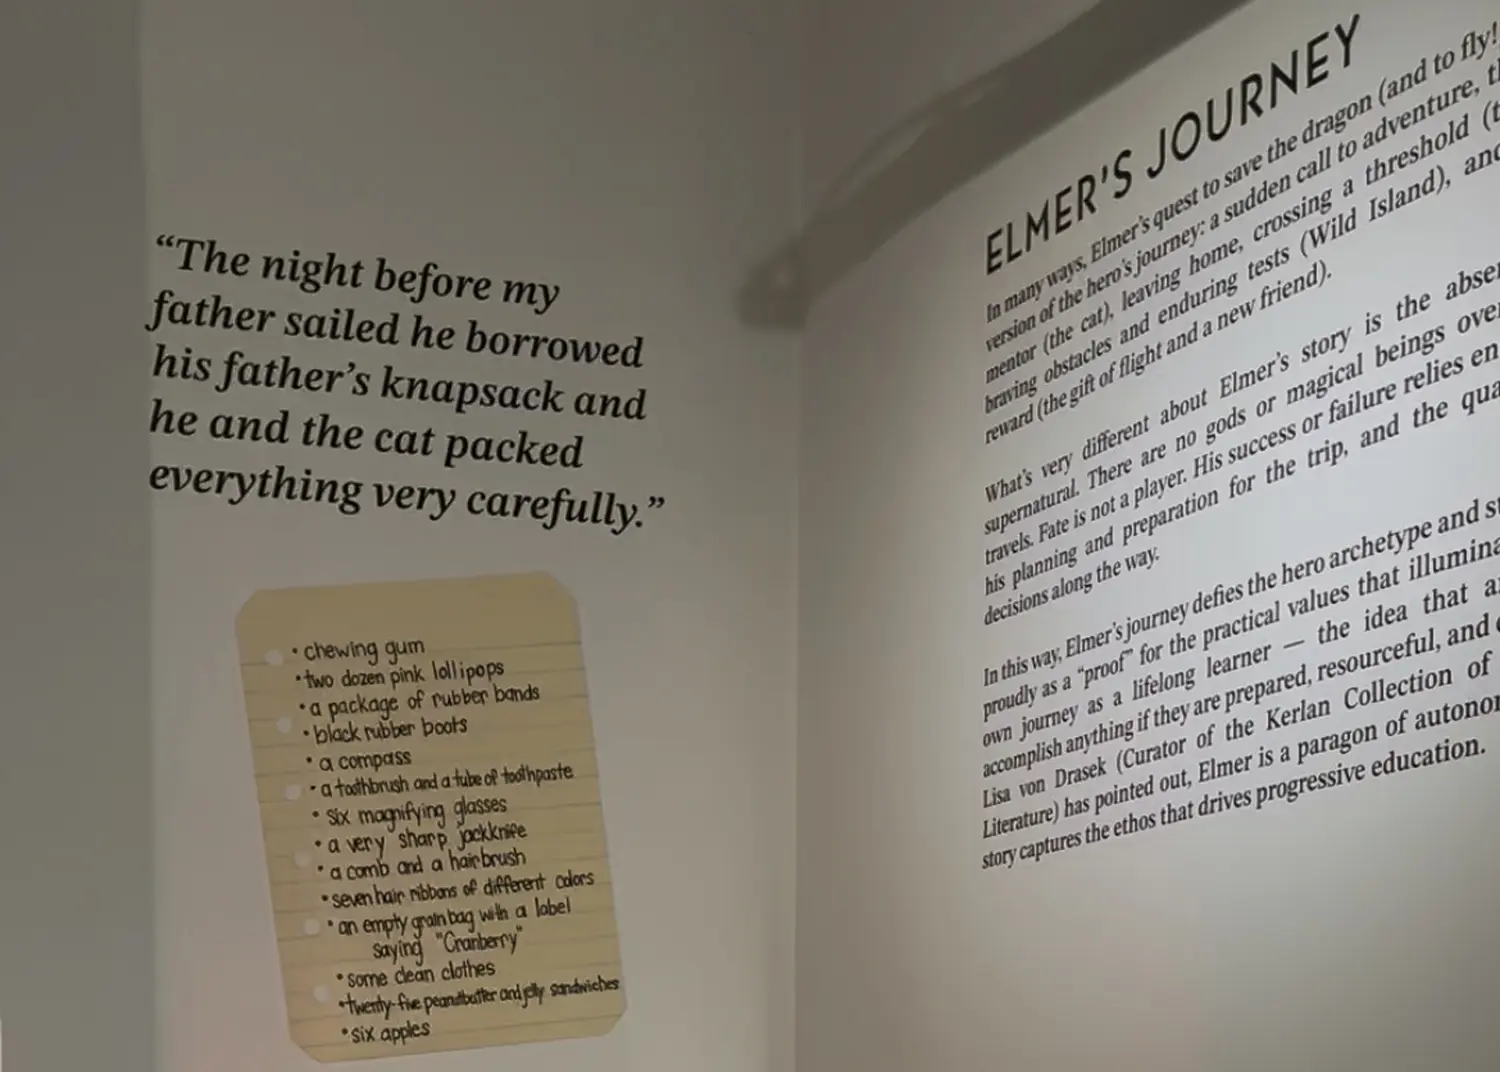 “The night before my
father sailed he borrowed
his father’s knapsack and
he and the cat packed
everything very carefully.”
• chewing gum
• two dozen pink lollipops
• a package of rubber bands
• black rubber boots
• a compass
• a toothbrush and a tube of toothpaste
• six magnifying glasses
• a very sharp jackknife
• a comb and a hairbrush
• seven hair ribbons of different colors
• an empty grain bag with a label
saying "Cranberry"
• some clean clothes
• twenty-five peanut butter and jelly sandwiches
• six apples
ELMER'S JOURNEY
In many ways, Elmer’s quest to save the dragon (and to fly!
version of the hero’s journey: a sudden call to adventure,
mentor (the cat), leaving home, crossing a threshold
braving obstacles and enduring tests (Wild Island), and
reward (the gift of flight and a new friend).
What’s very different about Elmer’s story is the
supernatural. There are no gods or magical beings
travels. Fate is not a player. His success or failure relies
his planning and preparation for the trip, and the
decisions along the way.
In this way, Elmer’s journey defies the hero archetype and
proudly as a “proof” for the practical values that
own journey as a lifelong learner — the idea that
accomplish anything if they are prepared, resourceful, and
Lisa von Drasek (Curator of the Kerlan Collection of
Literature) has pointed out, Elmer is a paragon of
story captures the ethos that drives progressive education.